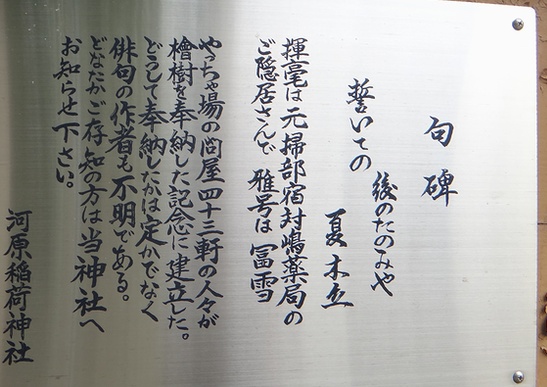 句碑
誓いての
後のたのみや
夏木立
揮毫は元掃部宿対嶋薬局の
ご隠居さんで 雅号は 冨雪
やっちゃ場の問屋四十三軒の人々が
檜樹を奉納した記念に建立した。
どうして奉納したかは定かでなく
俳句の作者も不明である。
どなたかご存知の方は当神社へ
お知らせ下さい。
河原稲荷神社